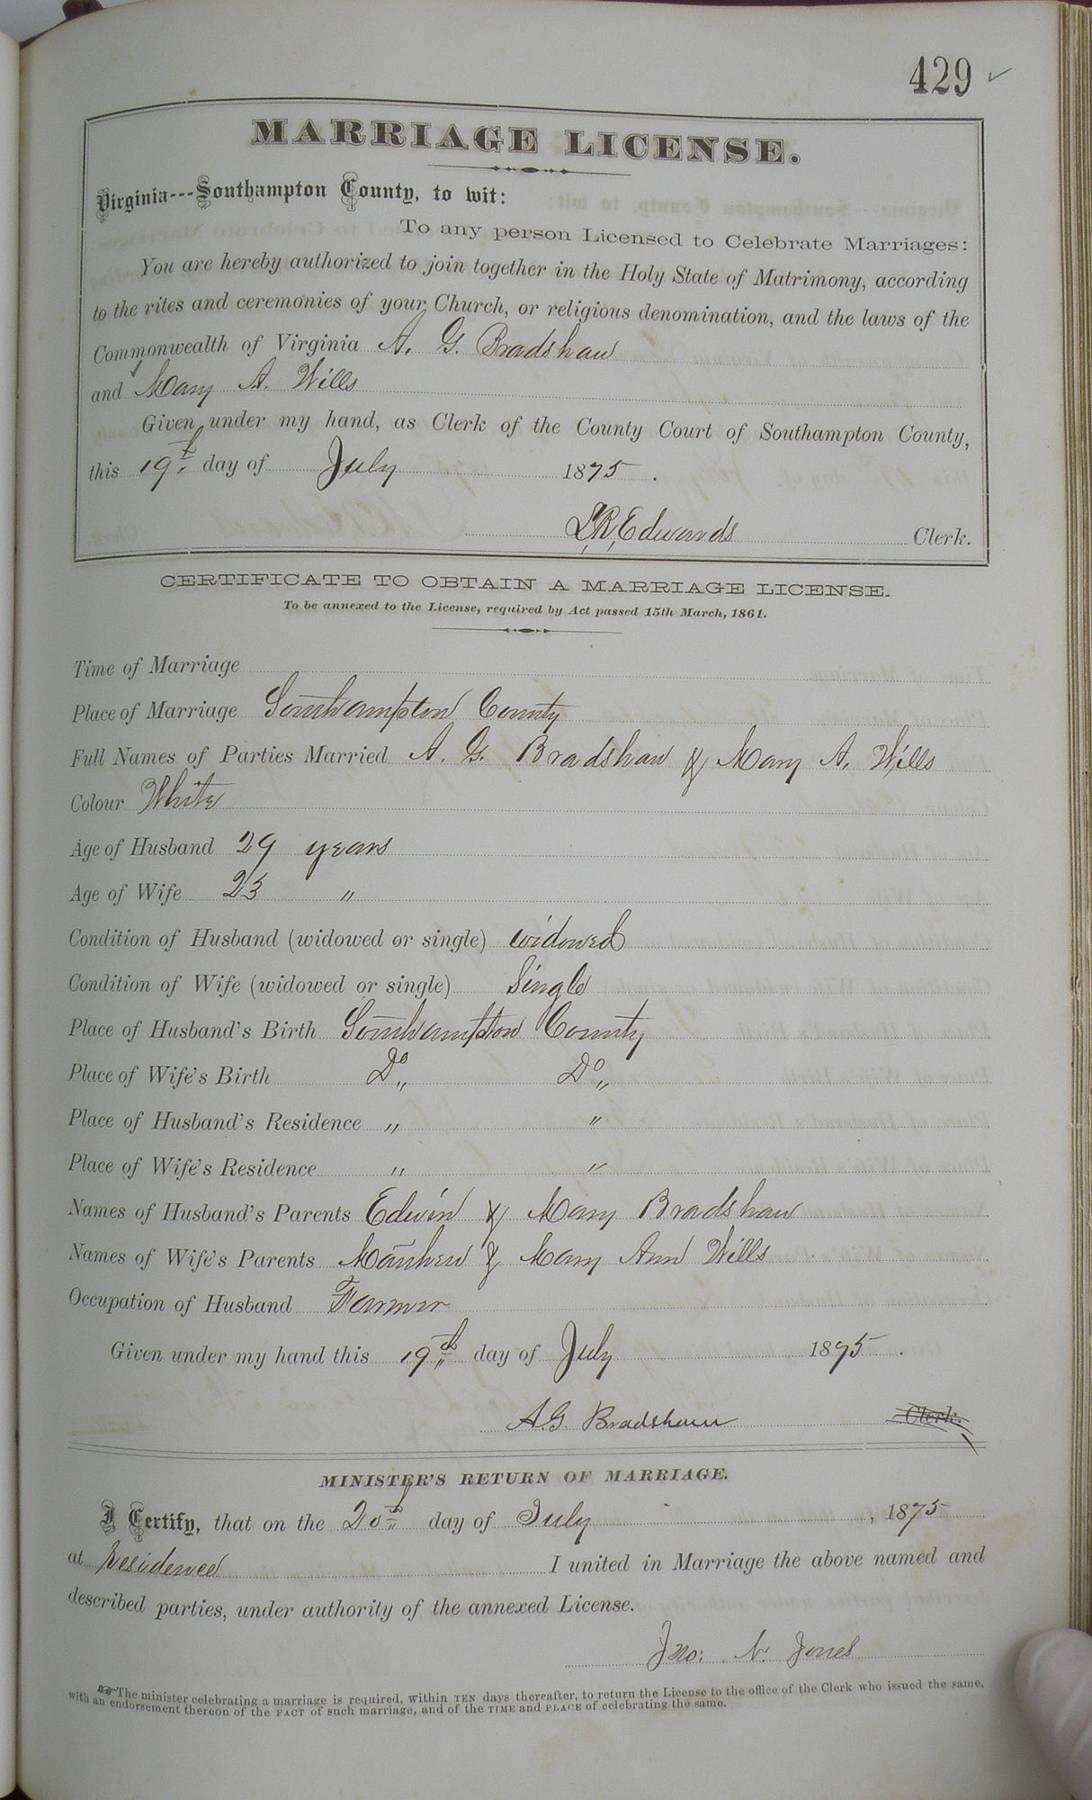 429 ✓
MARRIAGE LICENSE.
Virginia---Southampton County, to wit:
To any person Licensed to Celebrate Marriages:
You are hereby authorized to join together in the Holy State of Matrimony, according
to the rites and ceremonies of your Church, or religious denomination, and the laws of the
Commonwealth of Virginia A. G. Bradshaw
and Mary A. Wills
Given under my hand, as Clerk of the County Court of Southampton County,
this 19th day of July 1875.
L.R. Edwards Clerk.
CERTIFICATE TO OBTAIN A MARRIAGE LICENSE.
To be annexed to the License, required by Act passed 15th March, 1861.
Time of Marriage
Place of Marriage Southampton County
Full Names of Parties Married A. G. Bradshaw & Mary A. Wills
Colour White
Age of Husband 29 years
Age of Wife 23 "
Condition of Husband (widowed or single) widowed
Condition of Wife (widowed or single) Single
Place of Husband's Birth Southampton County
Place of Wife's Birth Do " Do "
Place of Husband's Residence " "
Place of Wife's Residence " "
Names of Husband's Parents Edwin & Mary Bradshaw
Names of Wife's Parents Mathew & Mary Ann Wills
Occupation of Husband Farmer
Given under my hand this 19th day of July 1875.
A.G. Bradshaw Clerk.
MINISTER'S RETURN OF MARRIAGE.
I Certify, that on the 20th day of July, 1875
at residence I united in Marriage the above named and
described parties, under authority of the annexed License.
Jno: N. Jones
The minister celebrating a marriage is required, within TEN days thereafter, to return the License to the office of the Clerk who issued the same,
with an endorsement thereon of the FACT of such marriage, and of the TIME and PLACE of celebrating the same.